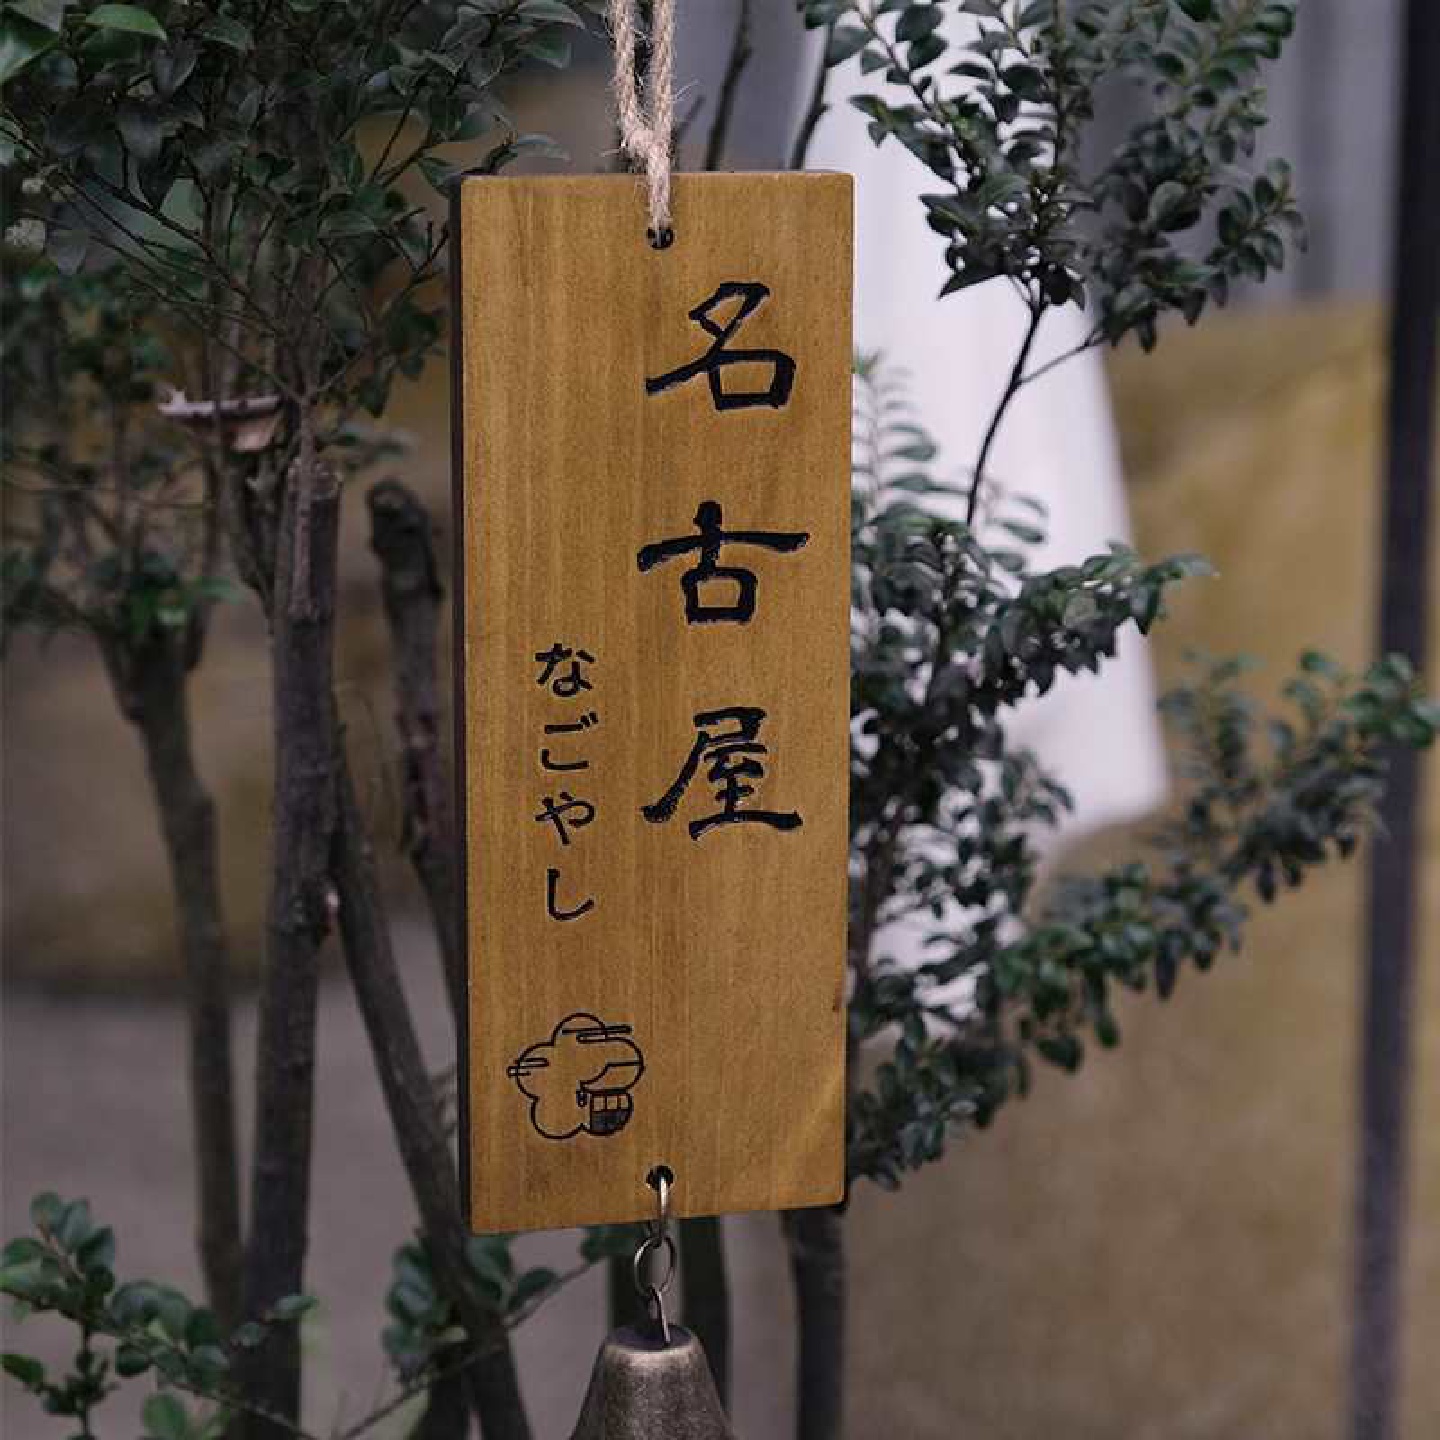 名古屋
なごやし